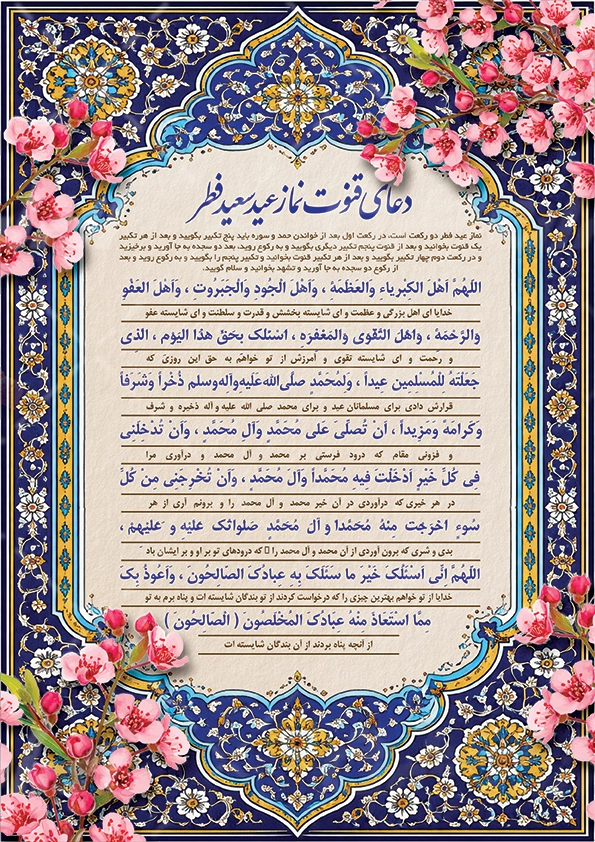 دعای قنوت نماز عید سعید فطر
نماز عید فطر دو رکعت است، در رکعت اول بعد از خواندن حمد و سوره باید پنج تکبیر بگویید و بعد از هر تکبیر
یک قنوت بخوانید و بعد از قنوت پنجم تکبیر دیگری بگویید و به رکوع روید، بعد دو سجده به جا آورید و برخیزید
و در رکعت دوم چهار تکبیر بگویید و بعد از هر تکبیر قنوت بخوانید و تکبیر پنجم را بگویید و به رکوع روید و بعد
از رکوع دو سجده به جا آورید و تشهد بخوانید و سلام گویید.
اللهُمَّ اَهْلَ الْکِبْرِیاءِ وَالْعَظَمَهِٔ ، وَاَهْلَ الْجُودِ وَالْجَبَرُوتِ ، وَاَهْلَ الْعَفْوِ
خدایا ای اهل بزرگی و عظمت و ای شایسته بخشش و قدرت و سلطنت و ای شایسته عفو
وَالرَّحْمَهِٔ ، وَاَهْلَ التَّقْوی وَالْمَغْفِرَهِ ، اَسْئَلُکَ بِحَقِّ هذَا الْیَوْمِ ، الَّذِی
و رحمت و ای شایسته تقوی و آمرزش از تو خواهم به حق این روزی که
جَعَلْتَهُ لِلْمُسْلِمینَ عیداً ، وَلِمُحَمَّدٍ صَلَّی الله عَلَیْهِ وَآلِه وسلم ذُخْراً وَشَرَفاً
قرارش دادی برای مسلمانان عید و برای محمد صلی الله علیه و آله ذخیره و شرف
وَکَرامَهًٔ وَمَزیداً ، اَنْ تُصَلِّیَ عَلی مُحَمَّدٍ وَآلِ مُحَمَّدٍ ، وَاَنْ تُدْخِلَنی
و فزونی مقام که درود فرستی بر محمد و آل محمد و درآوری مرا
فِی کُلِّ خَیْرٍ اَدْخَلْتَ فیهِ مُحَمَّداً وَآلَ مُحَمَّدٍ ، وَاَنْ تُخْرِجَنی مِنْ کُلِّ
در هر خیری که درآوردی در آن خیر محمد و آل محمد را و برونم آری از هر
سُوءٍ اَخْرَجْتَ مِنْهُ مُحَمَّدا وَ آلَ مُحَمَّدٍ صَلَواتُکَ عَلَیْهِ وَ عَلَیْهِمْ ،
بدی و شری که برون آوردی از آن محمد و آل محمد را که درودهای تو بر او و بر ایشان باد
اَللهُمَّ اِنّی اَسْئَلُکَ خَیْرَ ما سَئَلَکَ بِهِ عِبادُکَ الصّالِحُونَ ، وَاَعُوذُ بِکَ
خدایا از تو خواهم بهترین چیزی را که درخواست کردند از تو بندگان شایسته ات و پناه برم به تو
مِمَّا اسْتَعاذَ مِنْهُ عِبادُکَ الْمُخْلَصُونَ ( الْصالِحُون )
از آنچه پناه بردند از آن بندگان شایسته ات